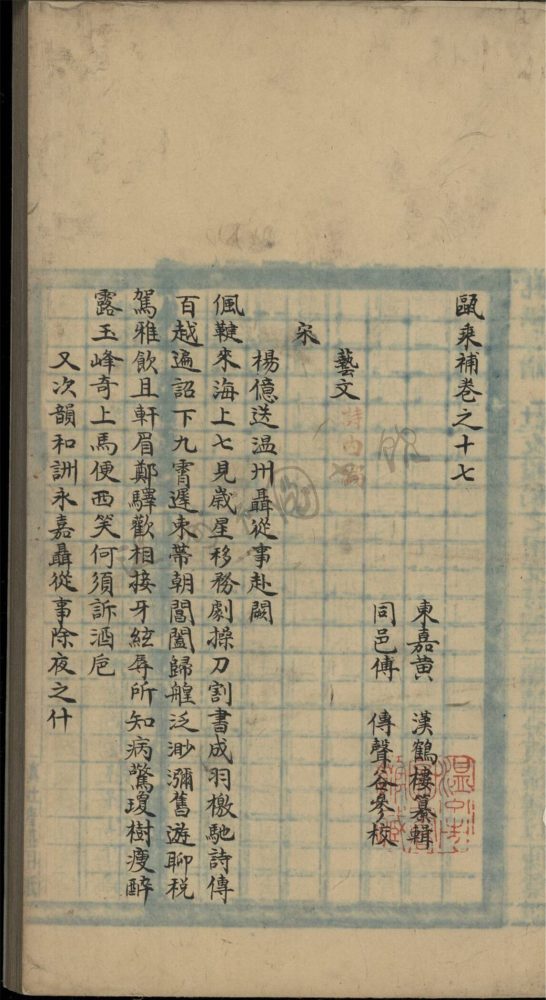 甌乘補卷之十七
東嘉黃　漢鶴樓纂輯
同邑傅　傳聲谷參校
藝文
宋
楊億送温州聶從事赴闕
佩鞬來海上七見歳星移務劇操刀割書成羽檄馳詩傳
百越遍詔下九霄遲束帶朝閶闔歸艎泛渺瀰舊遊聊税
駕雅飲且軒眉鄭驛歡相接牙絃辱所知病驚瓊樹瘦醉
露玉峰奇上馬便西笑何須訴酒卮
又次韻和詶永嘉聶從事除夜之什